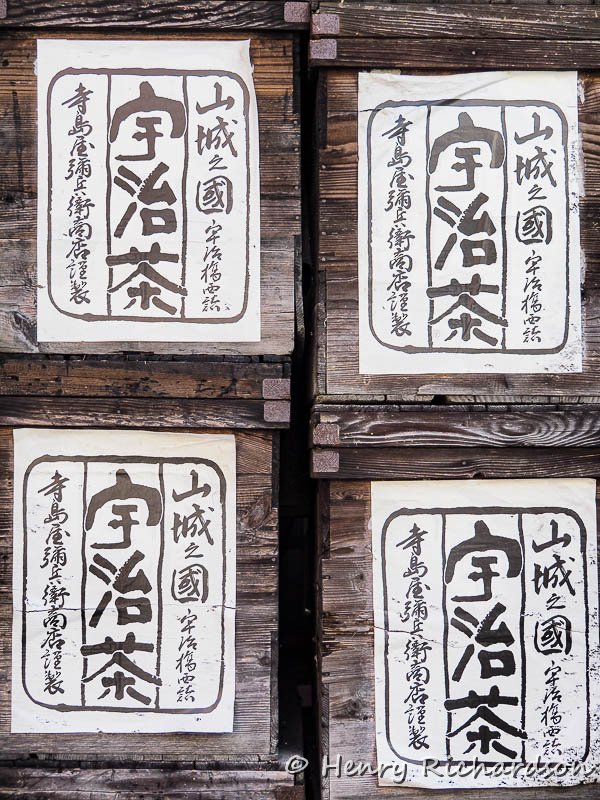 山城之國
宇治橋西詰
宇治茶
寺島屋彌兵衛商店謹製
山城之國
宇治橋西詰
宇治茶
寺島屋彌兵衛商店謹製
山城之國
宇治橋西詰
宇治茶
寺島屋彌兵衛商店謹製
山城之國
宇治橋西詰
宇治茶
寺島屋彌兵衛商店謹製
© Henry Richardson